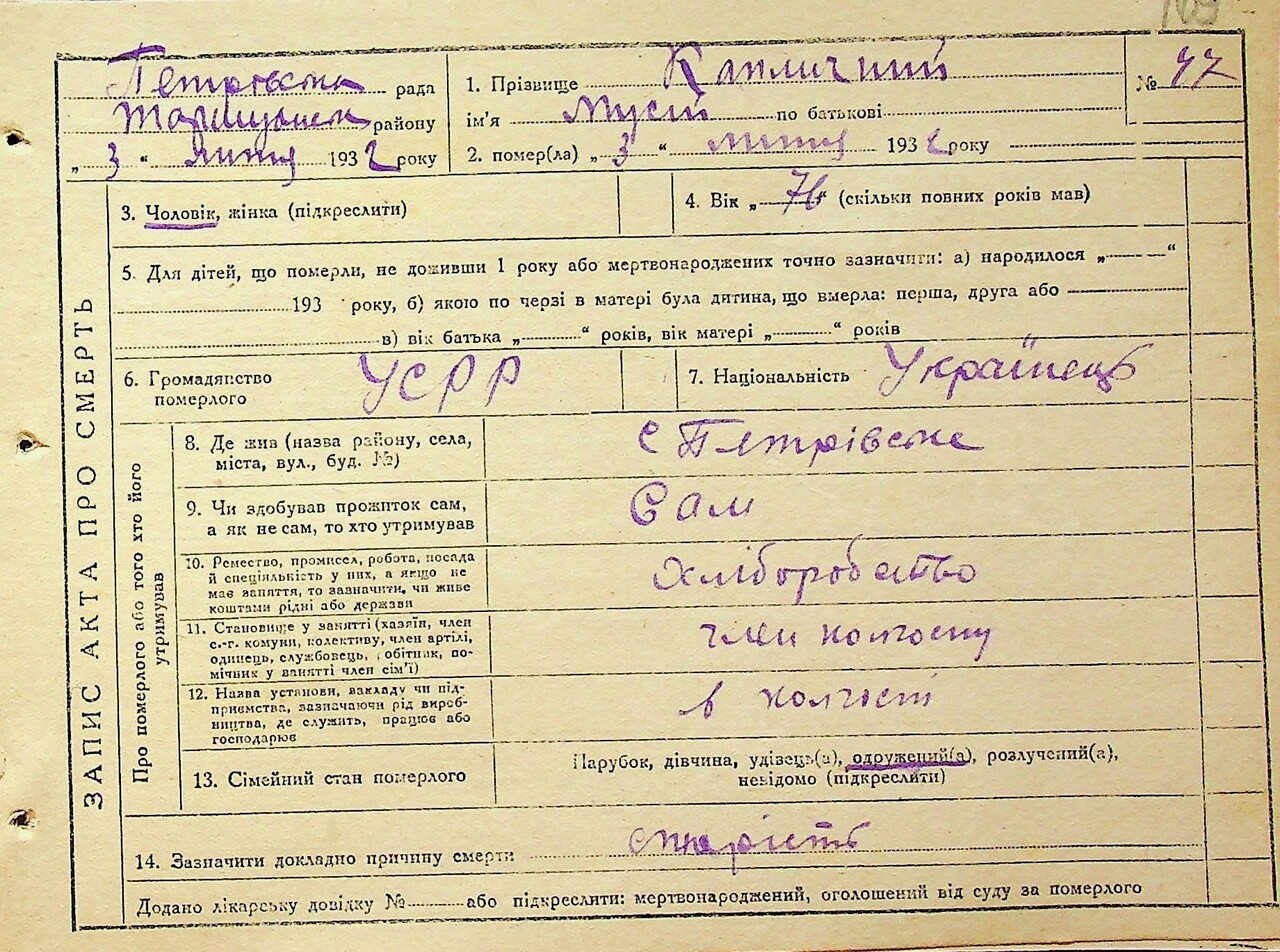 169
Петрівська рада
району
„ 3 “ липця 1932 року
1. Прізвище Капличний
ім'я Мусій по батькові
2. помер(ла) „ 3 “ липця 1932 року
№ 47
ЗАПИС АКТА ПРО СМЕРТЬ
3. Чоловік, жінка (підкреслити)
4. Вік „ 76 “ (скільки повних років мав)
5. Для дітей, що померли, не доживши 1 року або мертвонароджених точно зазначити: а) народилося „ “
193 року, б) якою по черзі в матері була дитина, що вмерла: перша, друга або
в) вік батька „ “ років, вік матері „ “ років
6. Громадянство
померлого
УСРР
7. Національність Українець
Про померлого або того хто його
утримував
8. Де жив (назва району, села,
міста, вул., буд. №)
с Петрівське
9. Чи здобував прожиток сам,
а як не сам, то хто утримував
Сам
10. Ремество, промисел, робота, посада
й спеціяльність у них, а якщо не
має заняття, то зазначити, чи живе
коштами рідні або держави
Хліборобство
11. Становище у занятті (хазяїн, член
с.-г. комуни, колективу, член артілі,
одинець, службовець, робітник, по-
мічник у занятті член сім'ї)
член колгоспу
12. Назва установи, закладу чи під-
приємства, зазначаючи рід вироб-
ництва, де служить, працює або
господарює
в колгоспі
13. Сімейний стан померлого
Парубок, дівчина, удівець(а), одружений(а), розлучений(а),
невідомо (підкреслити)
14. Зазначити докладно причину смерти старість
Додано лікарську довідку № або підкреслити: мертвонароджений, оголошений від суду за померлого